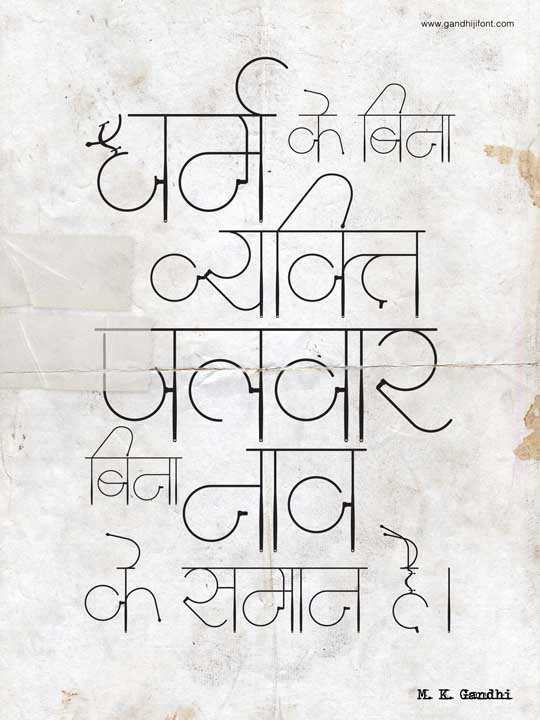 www.gandhijifont.com
धर्म के बिना
व्यक्ति
पतवार
बिना नाव
के समान है।
M. K. Gandhi